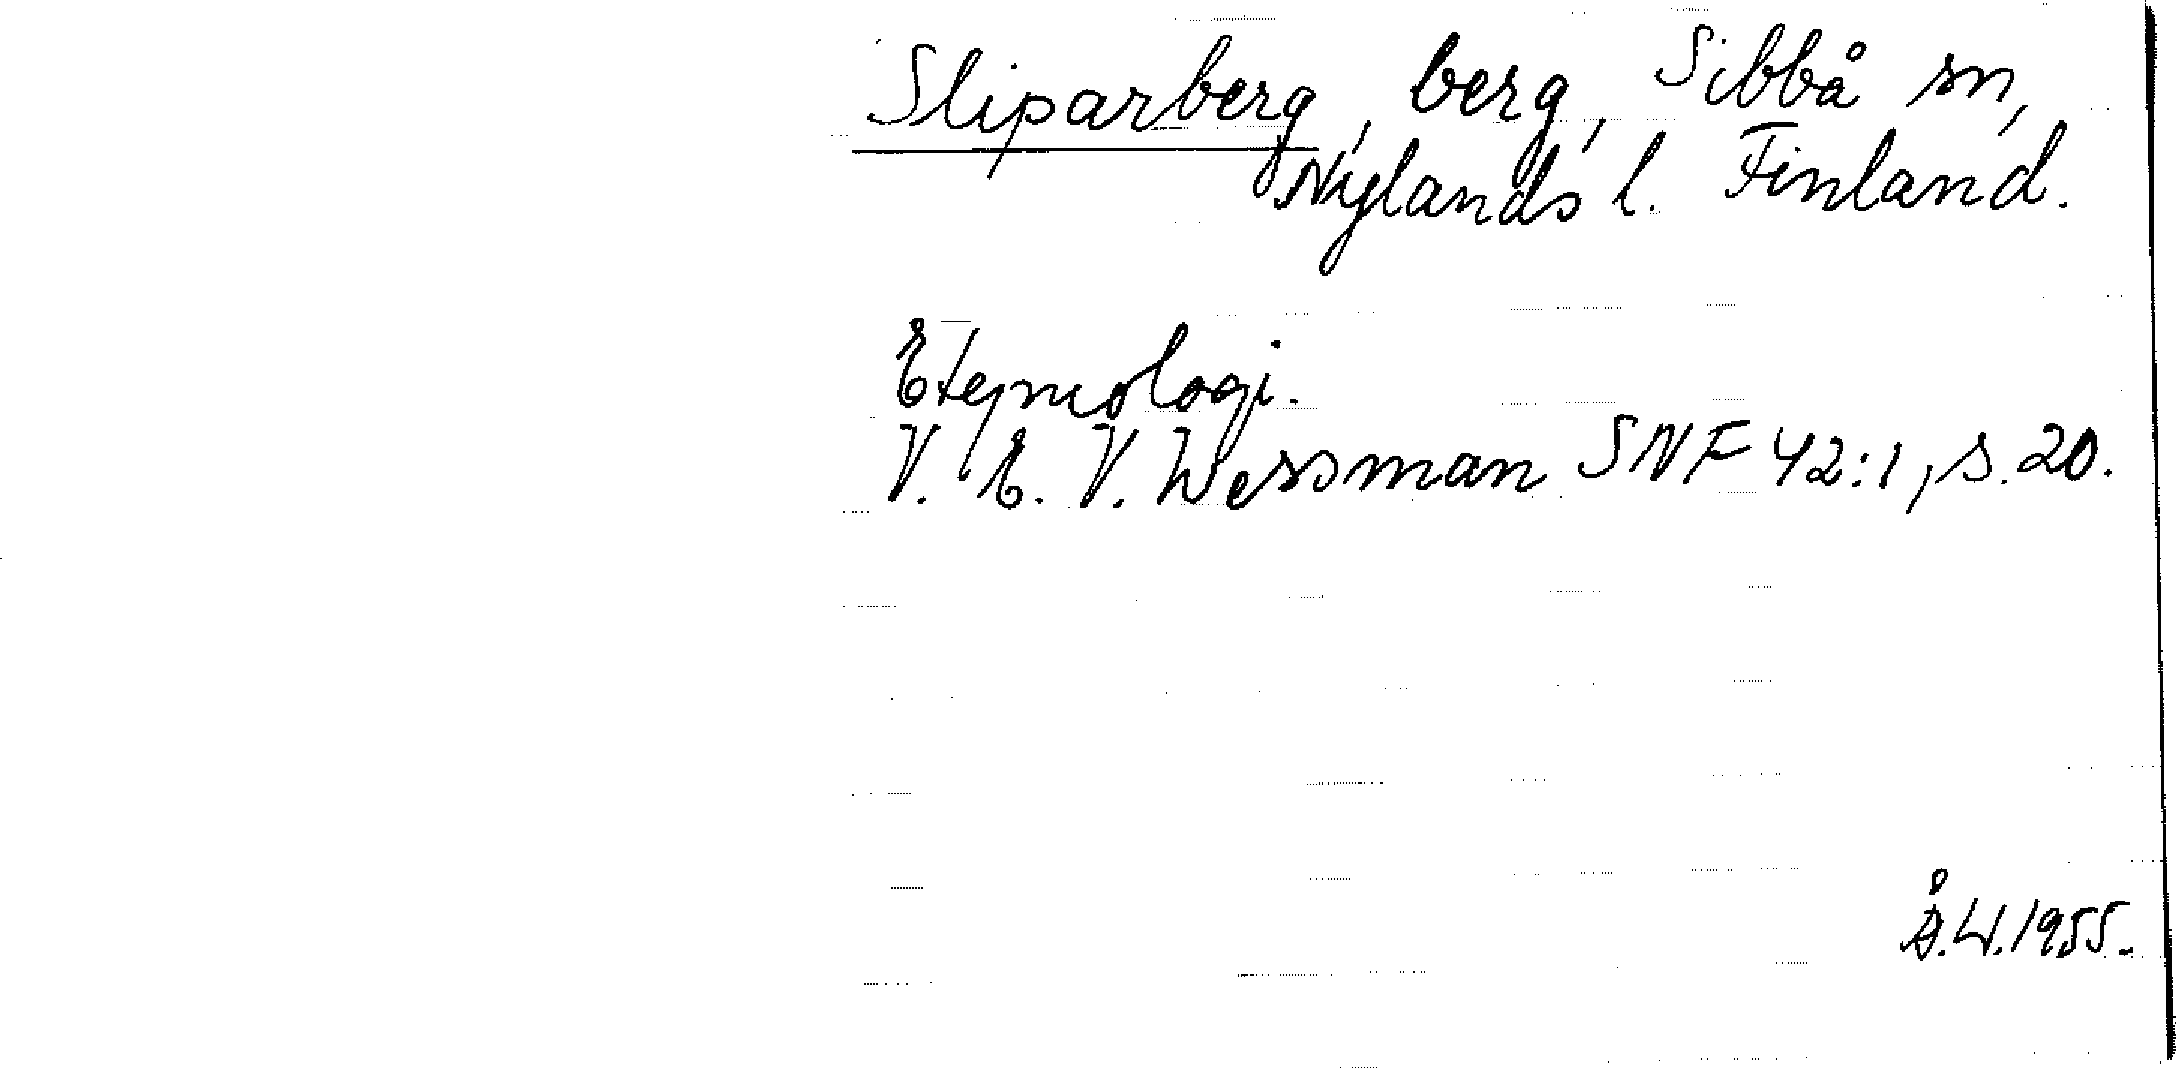 Sliparberg, berg, Sibbå sn,
Nylands l. Finland.
Etymologi.
V. E. V. Wessman SNF 42:1, s. 20.
Å.W.1955.